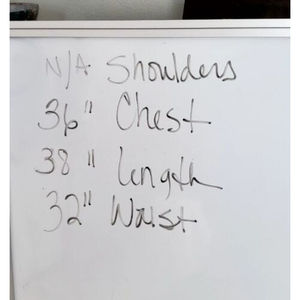 N/A Shoulders
36" Chest
38" Length
32" Waist